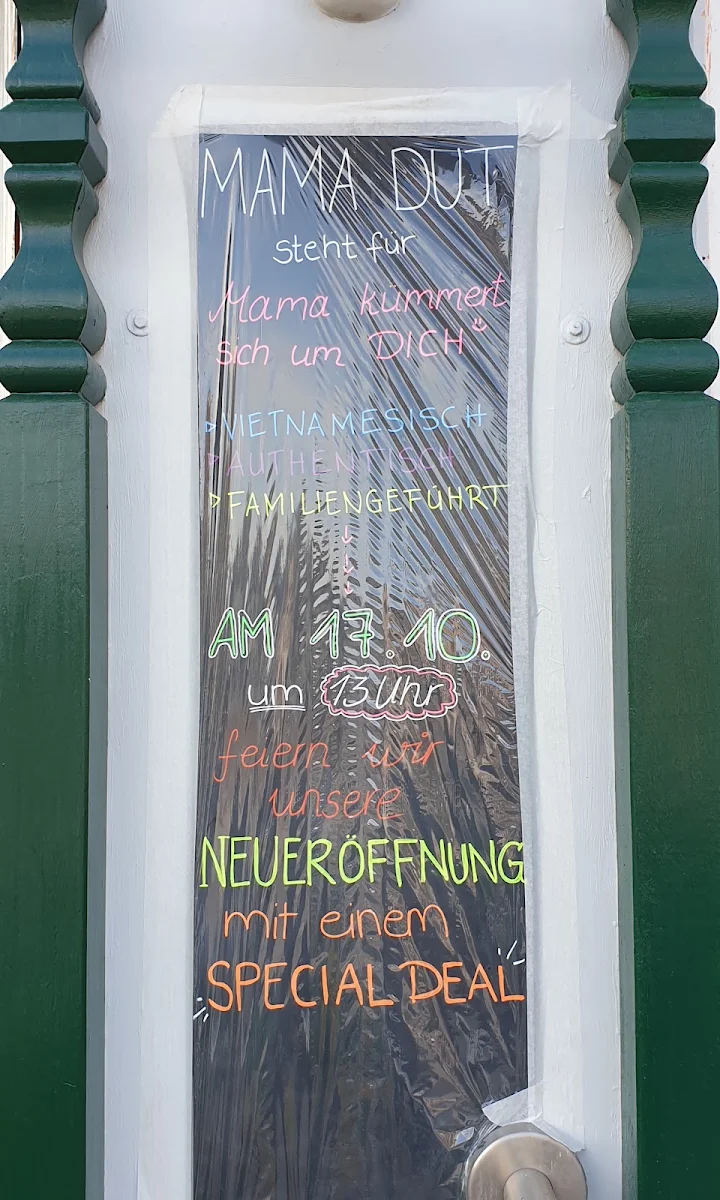 MAMA DUT
steht für
Mama kümmert
sich um DICH
VIETNAMESISCH
AUTHENTISCH
FAMILIENGEFÜHRT
AM 17.10.
um 13 Uhr
feiern wir
unsere
NEUERÖFFNUNG
mit einem
SPECIAL DEAL